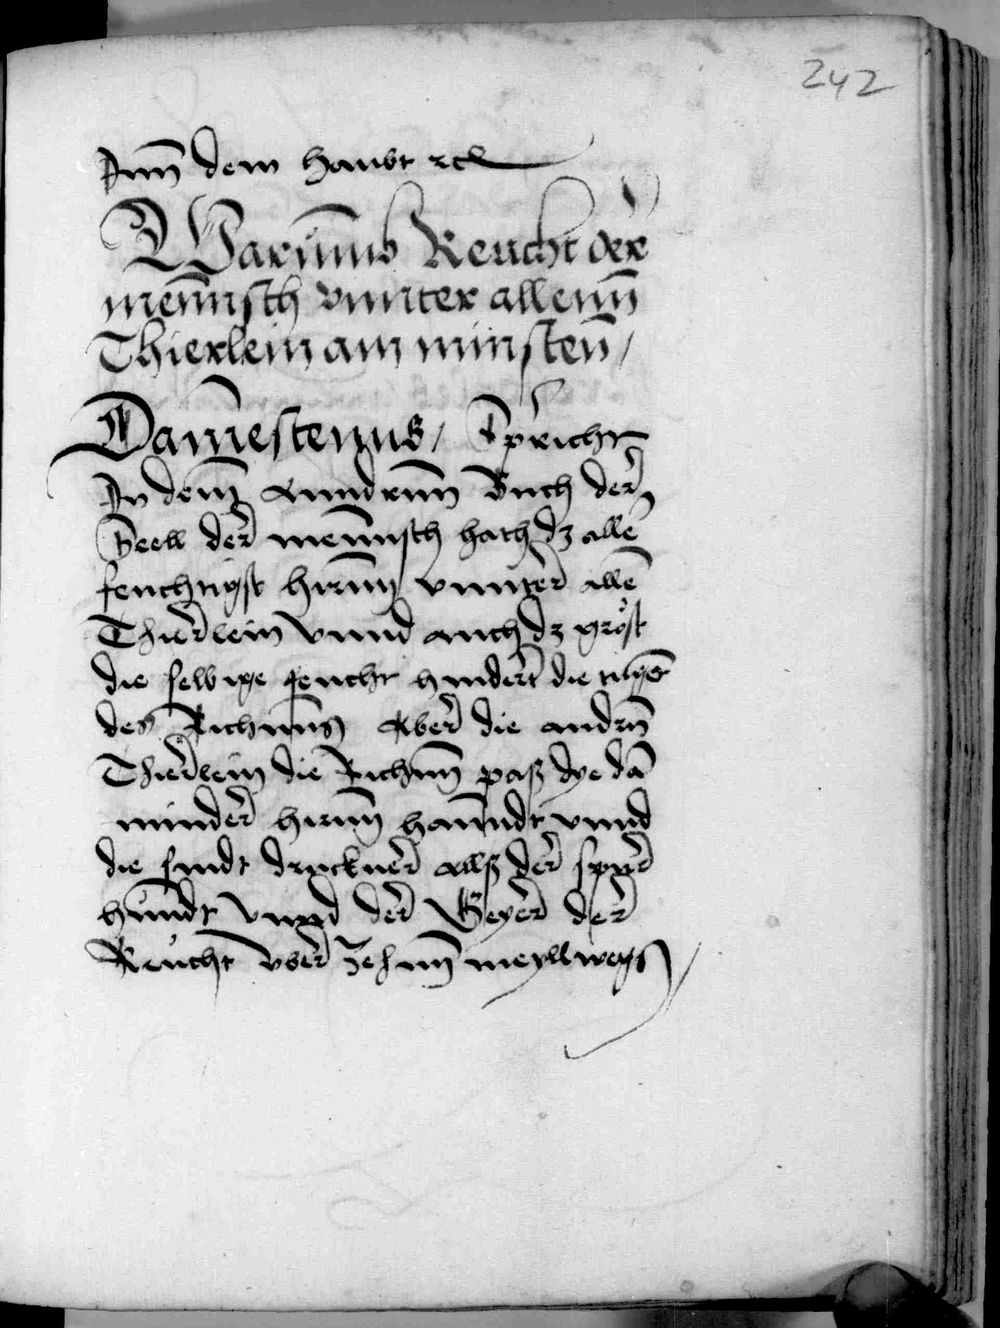 242
Jnn̄ dem haubt ꝛcꝛ
Warumb Reucht der
mennisch vnnter allenn̄
Thierlein am minsten /
Damestenus / Spricht
Jn dem anndrnn Buch der
Seell der mennisch hath dz alle
feuchtigst hirnn vnnter alle
Thierlein vnnd auch dz gröst
die selbige feucht hindert die
des Richnns Aber die andrn
Thierlein die Richnn paß dye da
minder hirnn hanndt vnnd
die sindt druckner allß der spur
hundt vnnd der Geyer der
Reucht vber zehnn meyllwegs /